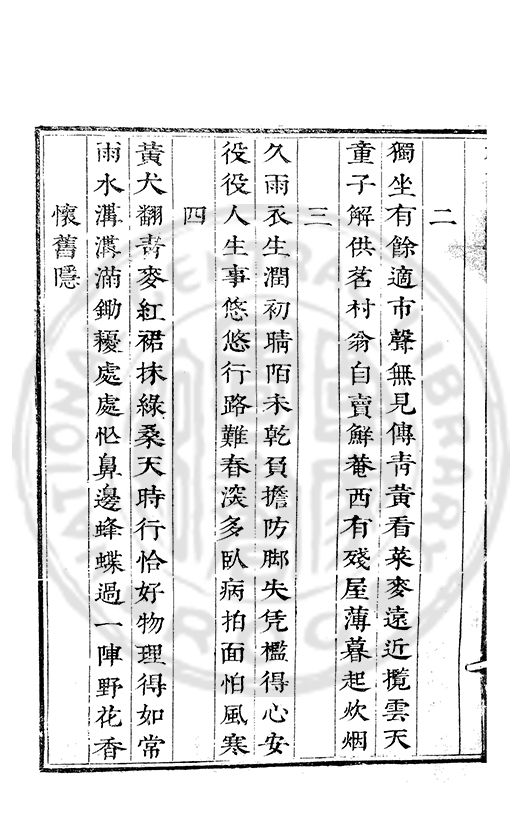 二
獨坐有餘適市聲無見傳青黃看菜麥遠近攬雲天
童子解供茗村翁自賣鮮菴西有殘屋薄暮起炊烟
三
久雨衣生潤初晴陌未乾負擔防脚失凭檻得心安
役役人生事悠悠行路難春深多臥病拍面怕風寒
四
黃犬翻青麥紅裙抹綠桑天時行恰好物理得如常
雨水溝溝滿鋤耰處處忙鼻邊蜂蝶過一陣野花香
懷舊隱